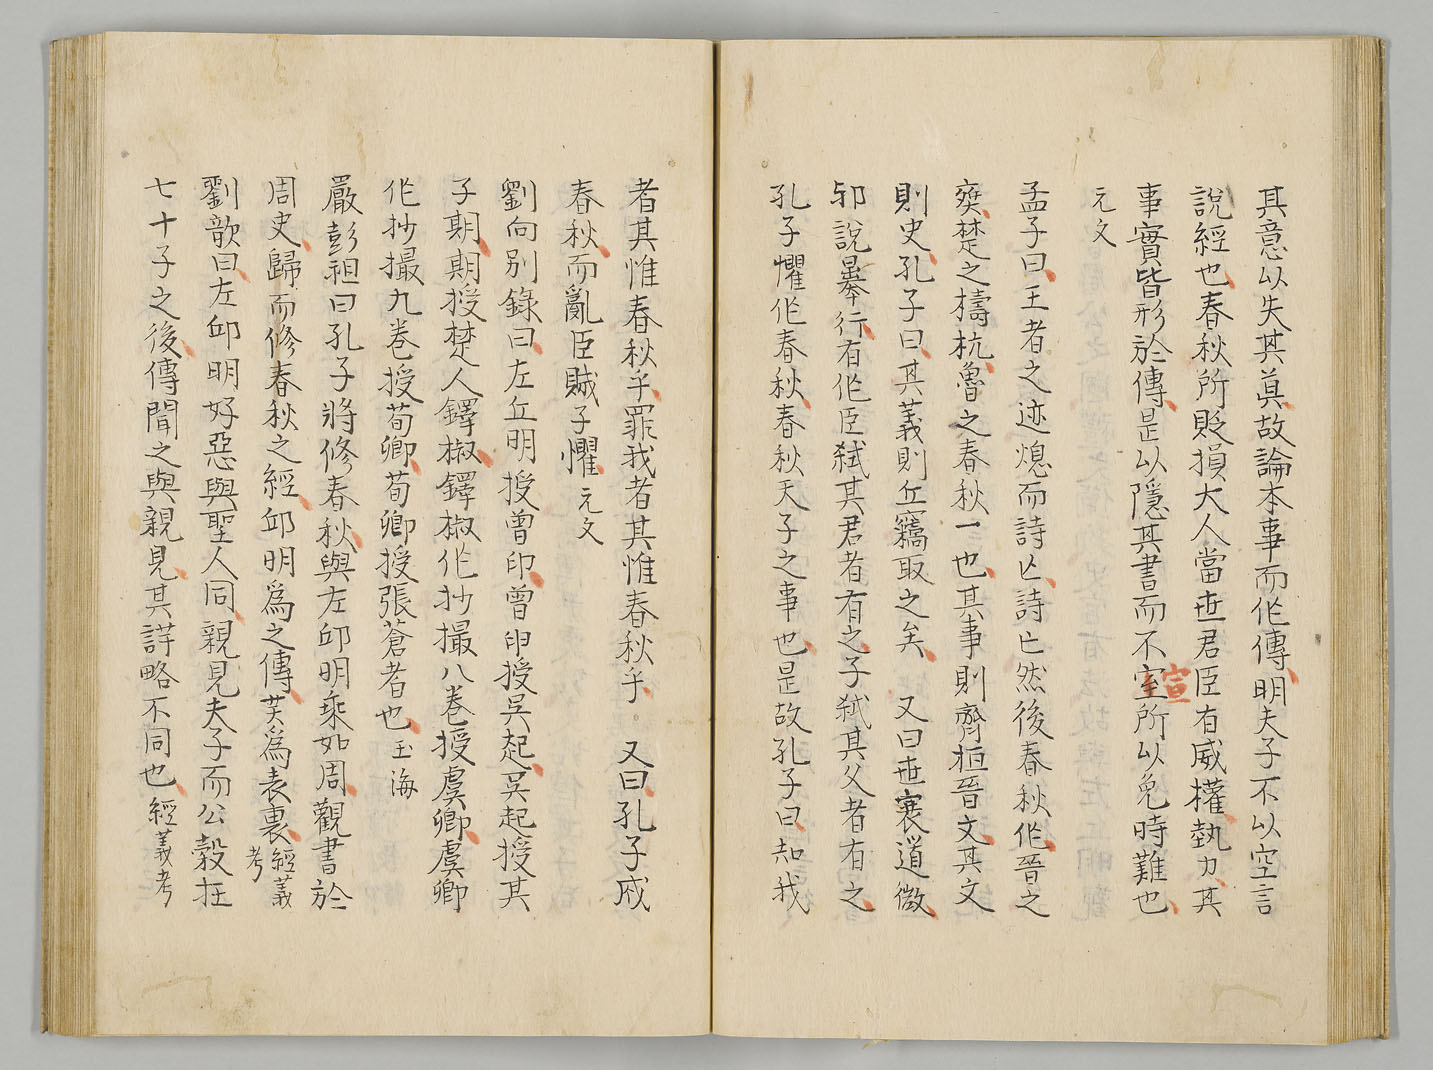 其意以失其眞故論本事而作傳明夫子不以空言
說經也春秋所貶損大人當世君臣有威權埶力其
事實皆形於傳是以隱其書而不室所以免時難也
宣
元文
孟子曰王者之迹熄而詩亡詩亡然後春秋作晉之
乘楚之檮杌魯之春秋一也其事則齊桓晉文其文
則史孔子曰其義則丘竊取之矣 又曰世衰道微
邪說暴行有作臣弑其君者有之子弑其父者有之
孔子懼作春秋春秋天子之事也是故孔子曰知我
者其惟春秋乎罪我者其惟春秋乎 又曰孔子成
春秋而亂臣賊子懼 元文
劉向別錄曰左丘明授曾申曾申授吳起吳起授其
子期期授楚人鐸椒鐸椒作抄撮八卷授虞卿虞卿
作抄撮九卷授荀卿荀卿授張蒼者也 玉海
嚴彭祖曰孔子將修春秋與左邱明乘如周觀書於
周史歸而修春秋之經邱明爲之傳共爲表裏 經義考
劉歆曰左邱明好惡與聖人同親見夫子而公穀在
七十子之後傳聞之與親見其詳略不同也 經義考